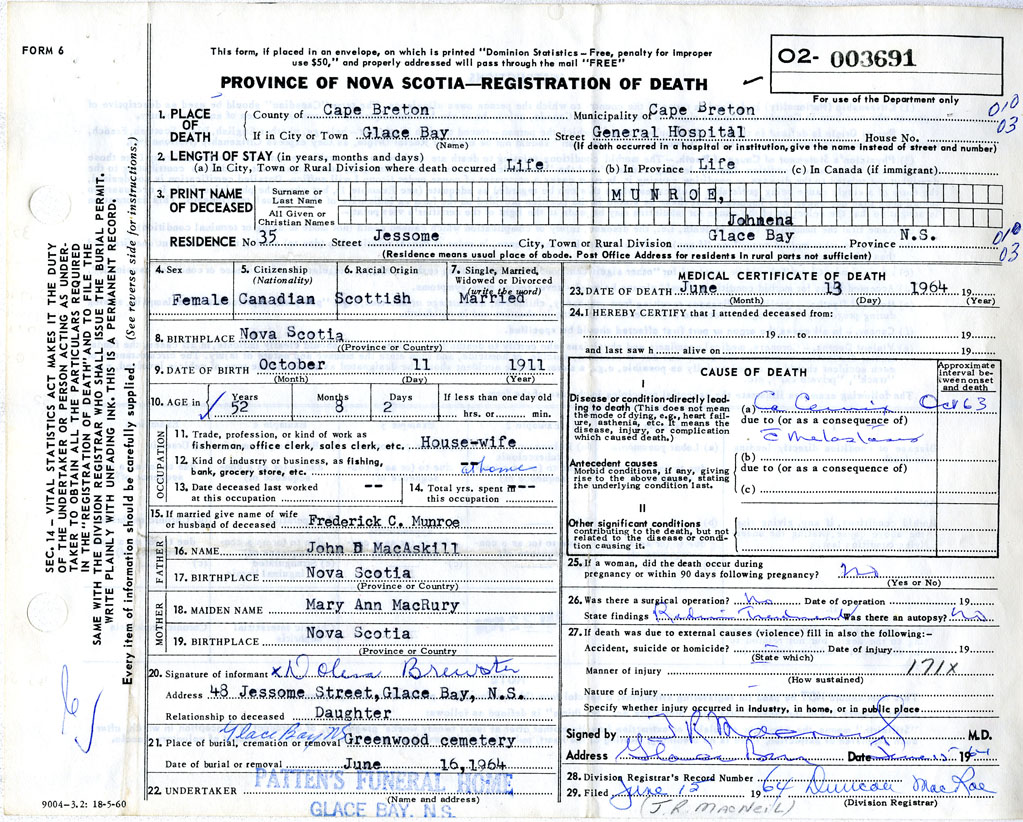 FORM 6
This form, if placed in an envelope, on which is printed "Dominion Statistics – Free, penalty for improper
use $50," and properly addressed will pass through the mail "FREE"
PROVINCE OF NOVA SCOTIA—REGISTRATION OF DEATH
02- 003691
For use of the Department only
010
03
1. PLACE OF DEATH
County of Cape Breton Municipality of Cape Breton
If in City or Town Glace Bay Street General Hospital House No.
(Name) (If death occurred in a hospital or institution, give the name instead of street and number)
2. LENGTH OF STAY (in years, months and days)
(a) In City, Town or Rural Division where death occurred Life (b) In Province Life (c) In Canada (if immigrant)
3. PRINT NAME OF DECEASED
Surname or Last Name MUNROE,
All Given or Christian Names Johmena
RESIDENCE No 35 Street Jessome City, Town or Rural Division Glace Bay Province N.S.
(Residence means usual place of abode. Post Office Address for residents in rural parts not sufficient)
010
03
4. Sex Female
5. Citizenship (Nationality) Canadian
6. Racial Origin Scottish
7. Single, Married, Widowed or Divorced (write the word) Married
8. BIRTHPLACE Nova Scotia
(Province or Country)
9. DATE OF BIRTH October 11 1911
(Month) (Day) (Year)
10. AGE in Years Months Days If less than one day old
52 8 2 hrs. or min.
OCCUPATION
11. Trade, profession, or kind of work as
fisherman, office clerk, sales clerk, etc. House-wife
12. Kind of industry or business, as fishing,
bank, grocery store, etc. at home
13. Date deceased last worked
at this occupation --
14. Total yrs. spent in
this occupation --
15. If married give name of wife
or husband of deceased Frederick C. Munroe
FATHER
16. NAME John D MacAskill
17. BIRTHPLACE Nova Scotia
(Province or Country)
MOTHER
18. MAIDEN NAME Mary Ann MacRury
19. BIRTHPLACE Nova Scotia
(Province or Country
20. Signature of informant x Brewster
Address 48 Jessome Street, Glace Bay, N.S.
Relationship to deceased Daughter
Glace Bay NS
21. Place of burial, cremation or removal Greenwood cemetery
Date of burial or removal June 16, 1964
22. UNDERTAKER PATTEN'S FUNERAL HOME
(Name and address)
GLACE BAY, N.S.
9004–3.2: 18-5-60
MEDICAL CERTIFICATE OF DEATH
23. DATE OF DEATH June 13 1964 19
(Month) (Day) (Year)
24. I HEREBY CERTIFY that I attended deceased from:
19 to 19
and last saw h alive on 19
CAUSE OF DEATH
Approximate interval between onset and death
I
Disease or condition directly leading to death (This does not mean the mode of dying, e.g., heart failure, asthenia, etc. It means the disease, injury, or complication which caused death.)
(a) Ca Cervix Oct 63
due to (or as a consequence of)
Metastases
Antecedent causes
Morbid conditions, if any, giving rise to the above cause, stating the underlying condition last.
(b)
due to (or as a consequence of)
(c)
II
Other significant conditions
contributing to the death, but not related to the disease or condition causing it.
25. If a woman, did the death occur during
pregnancy or within 90 days following pregnancy? No
(Yes or No)
26. Was there a surgical operation? No Date of operation 19
State findings Was there an autopsy? No
27. If death was due to external causes (violence) fill in also the following:–
Accident, suicide or homicide? – Date of injury 19
(State which)
Manner of injury 171X
(How sustained)
Nature of injury –
Specify whether injury occurred in industry, in home, or in public place
Signed by M.D.
Address Glace Bay Date June 15 1964
28. Division Registrar's Record Number
29. Filed June 15 1964 Duncan MacRae
(J.R. MACNEIL) (Division Registrar)
SEC. 14 – VITAL STATISTICS ACT MAKES IT THE DUTY
OF THE UNDERTAKER OR PERSON ACTING AS UNDER-
TAKER TO OBTAIN ALL THE PARTICULARS REQUIRED
IN THE "REGISTRATION OF DEATH" AND TO FILE THE
SAME WITH THE DIVISION REGISTRAR WHO SHALL ISSUE THE BURIAL PERMIT.
WRITE PLAINLY WITH UNFADING INK. THIS IS A PERMANENT RECORD.
Every item of information should be carefully supplied. (See reverse side for instructions.)